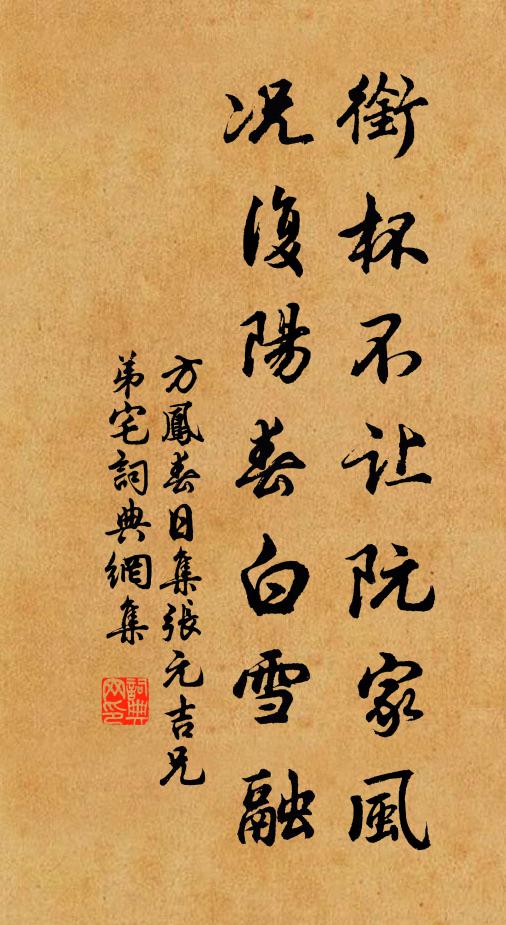 銜杯不让阮家風
况復陽春白雪融
方鳳春日集張元吉兄
弟宅詞典網集
詞典网印